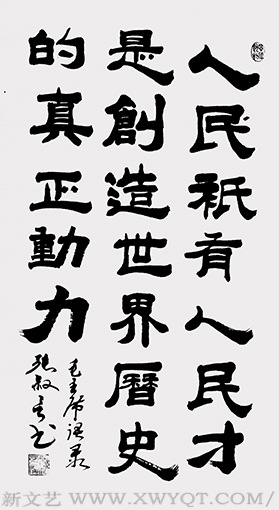 人民祇有人民才
是創造世界曆史
的真正動力
毛主席語录
张叔言书
新文艺 / WWW.XWYQT.COM /